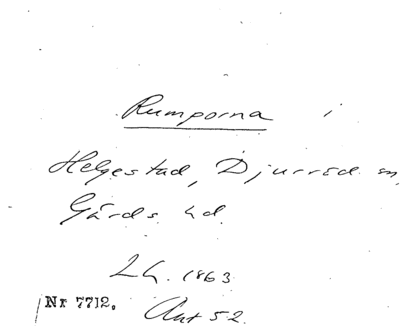 Rumporna i
Helgestad, Djurröd sn,
Gärds hd.
Lh. 1863
Nr 7712. Ant 52.